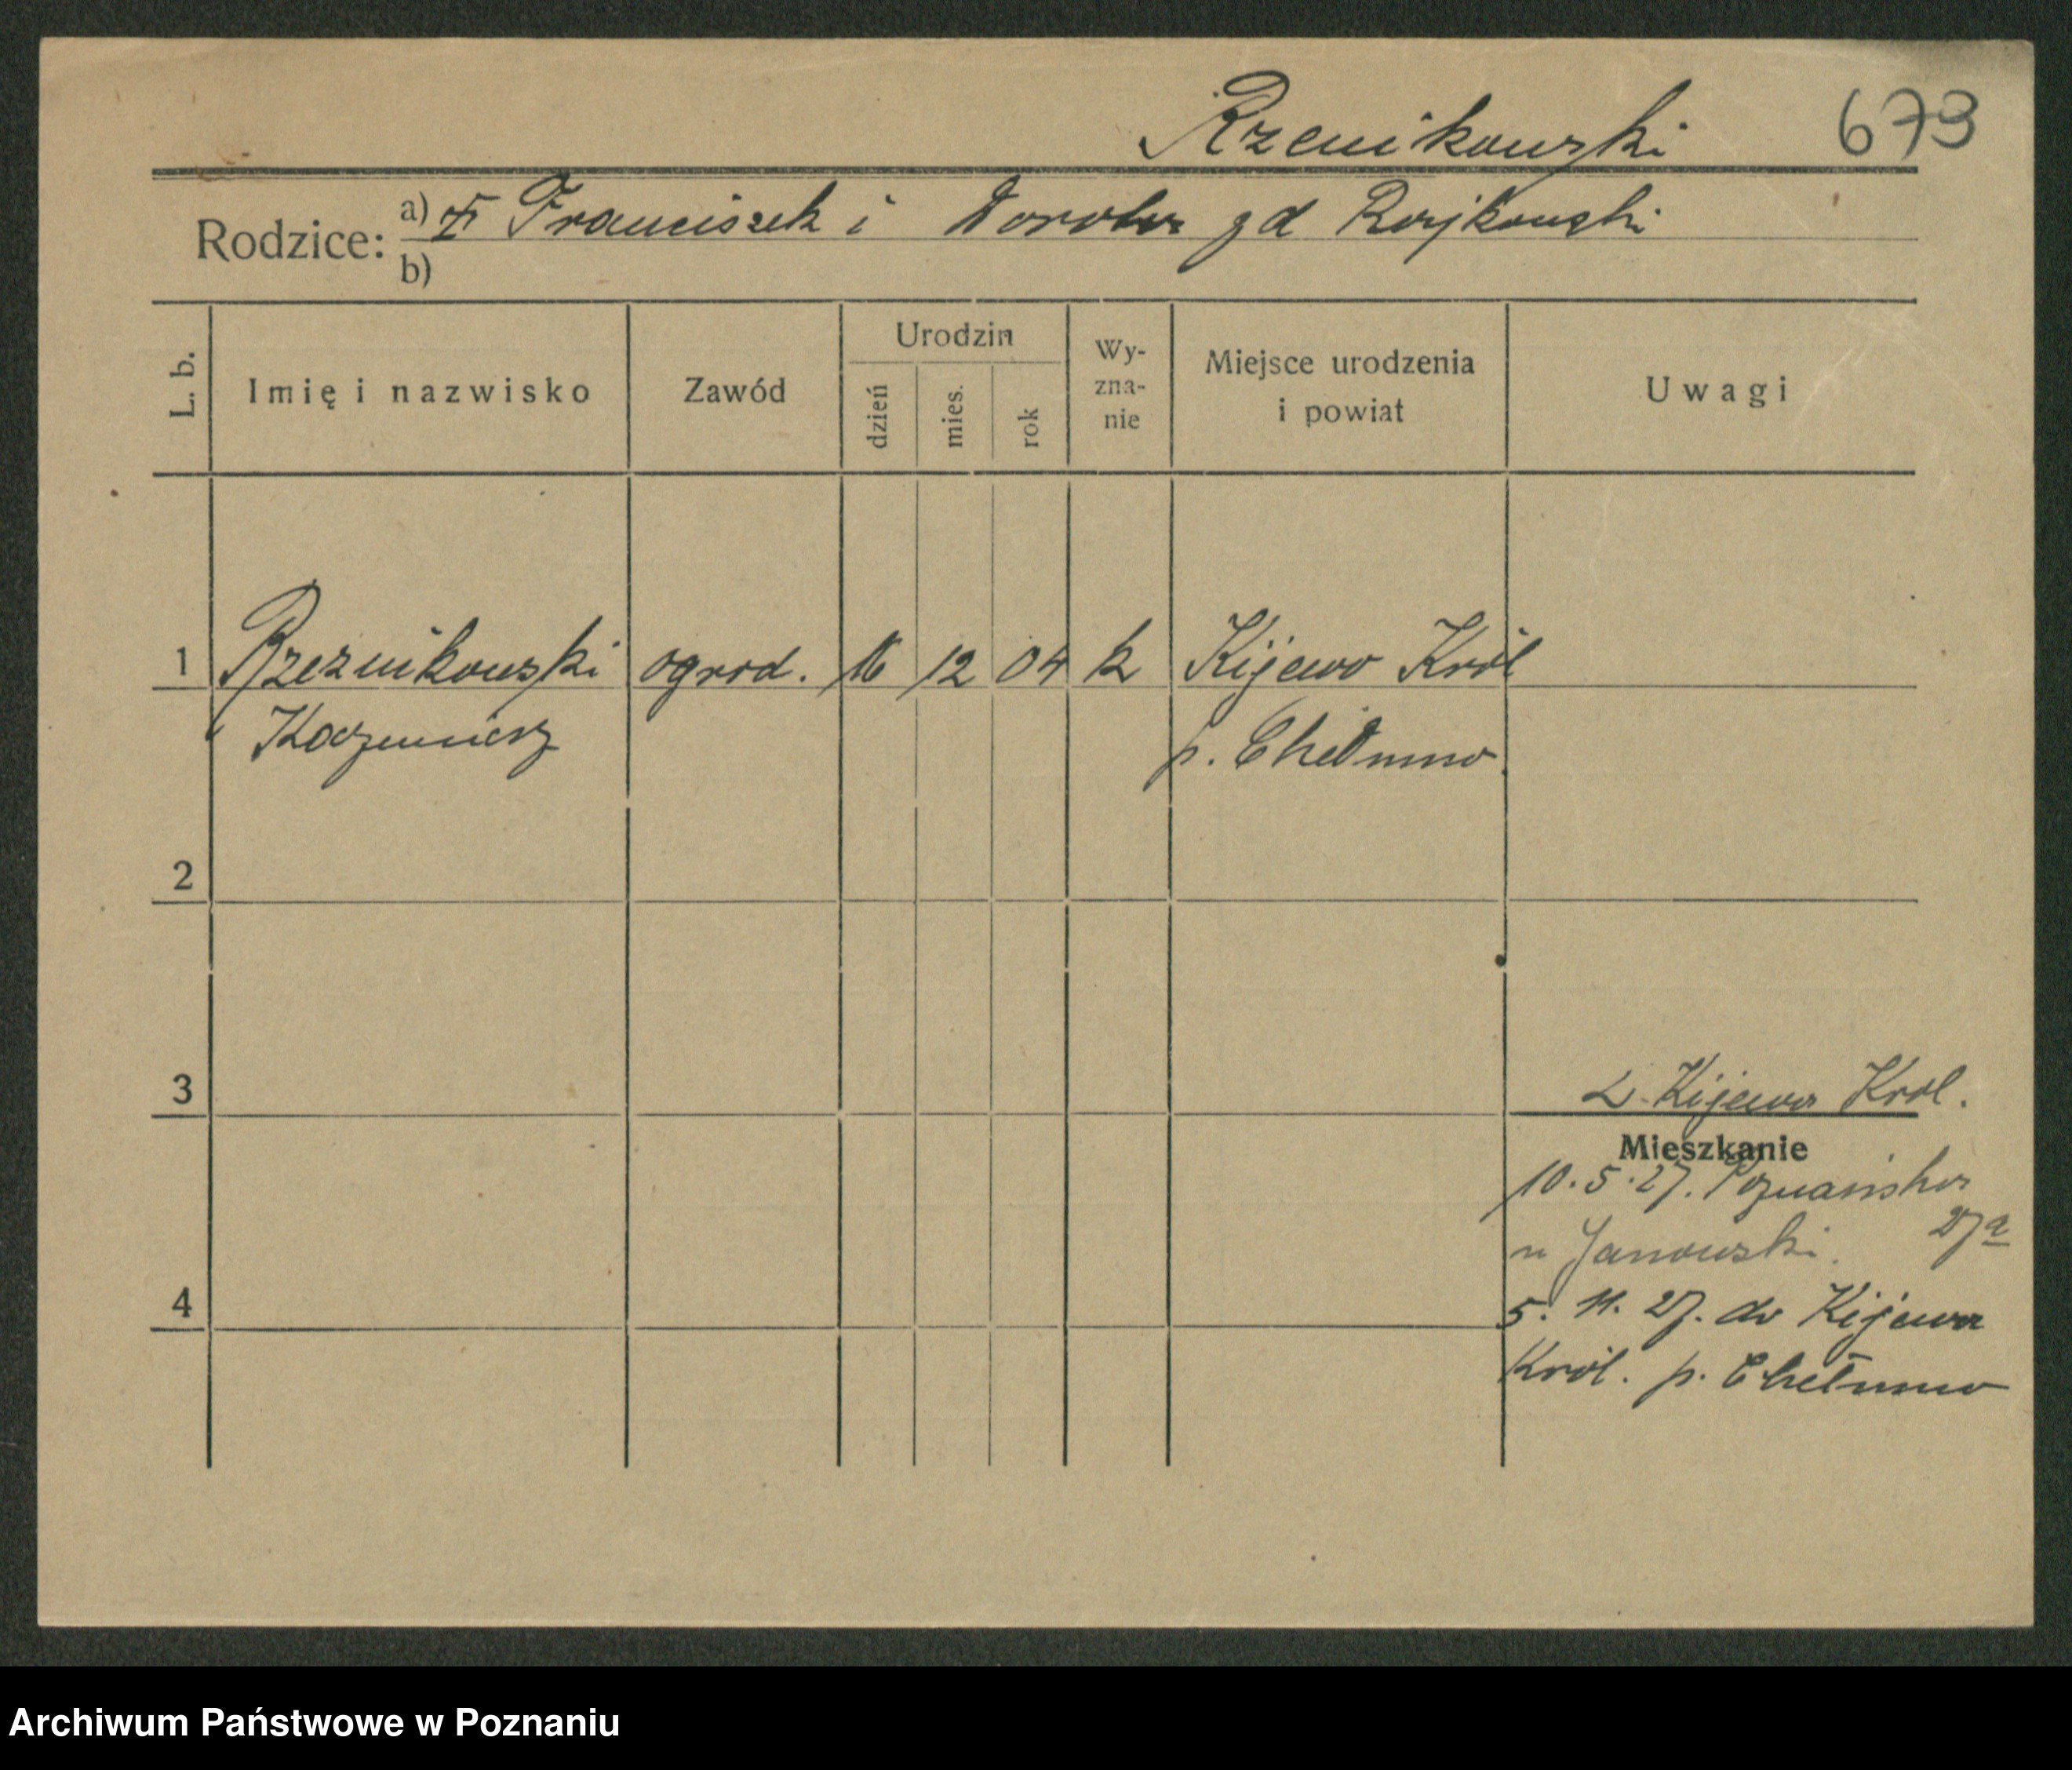 Rzenikowski 673
Rodzice: a) Franciszek i Dorota zd Rojkowski
b)
L. b. Imię i nazwisko Zawód Urodzin dzień mies. rok Wy-zna-nie Miejsce urodzenia i powiat Uwagi
1 Rzeznikowski ogrod. 16 12 04 k Kijewo Król
Kazimierz p. Chełmno
2
3
Z Kijewa Król.
Mieszkanie
10.5.27. Poznańska
27a
u Janowski.
4
5. 11. 27. do Kijewa
Król. p. Chełmno
Archiwum Państwowe w Poznaniu